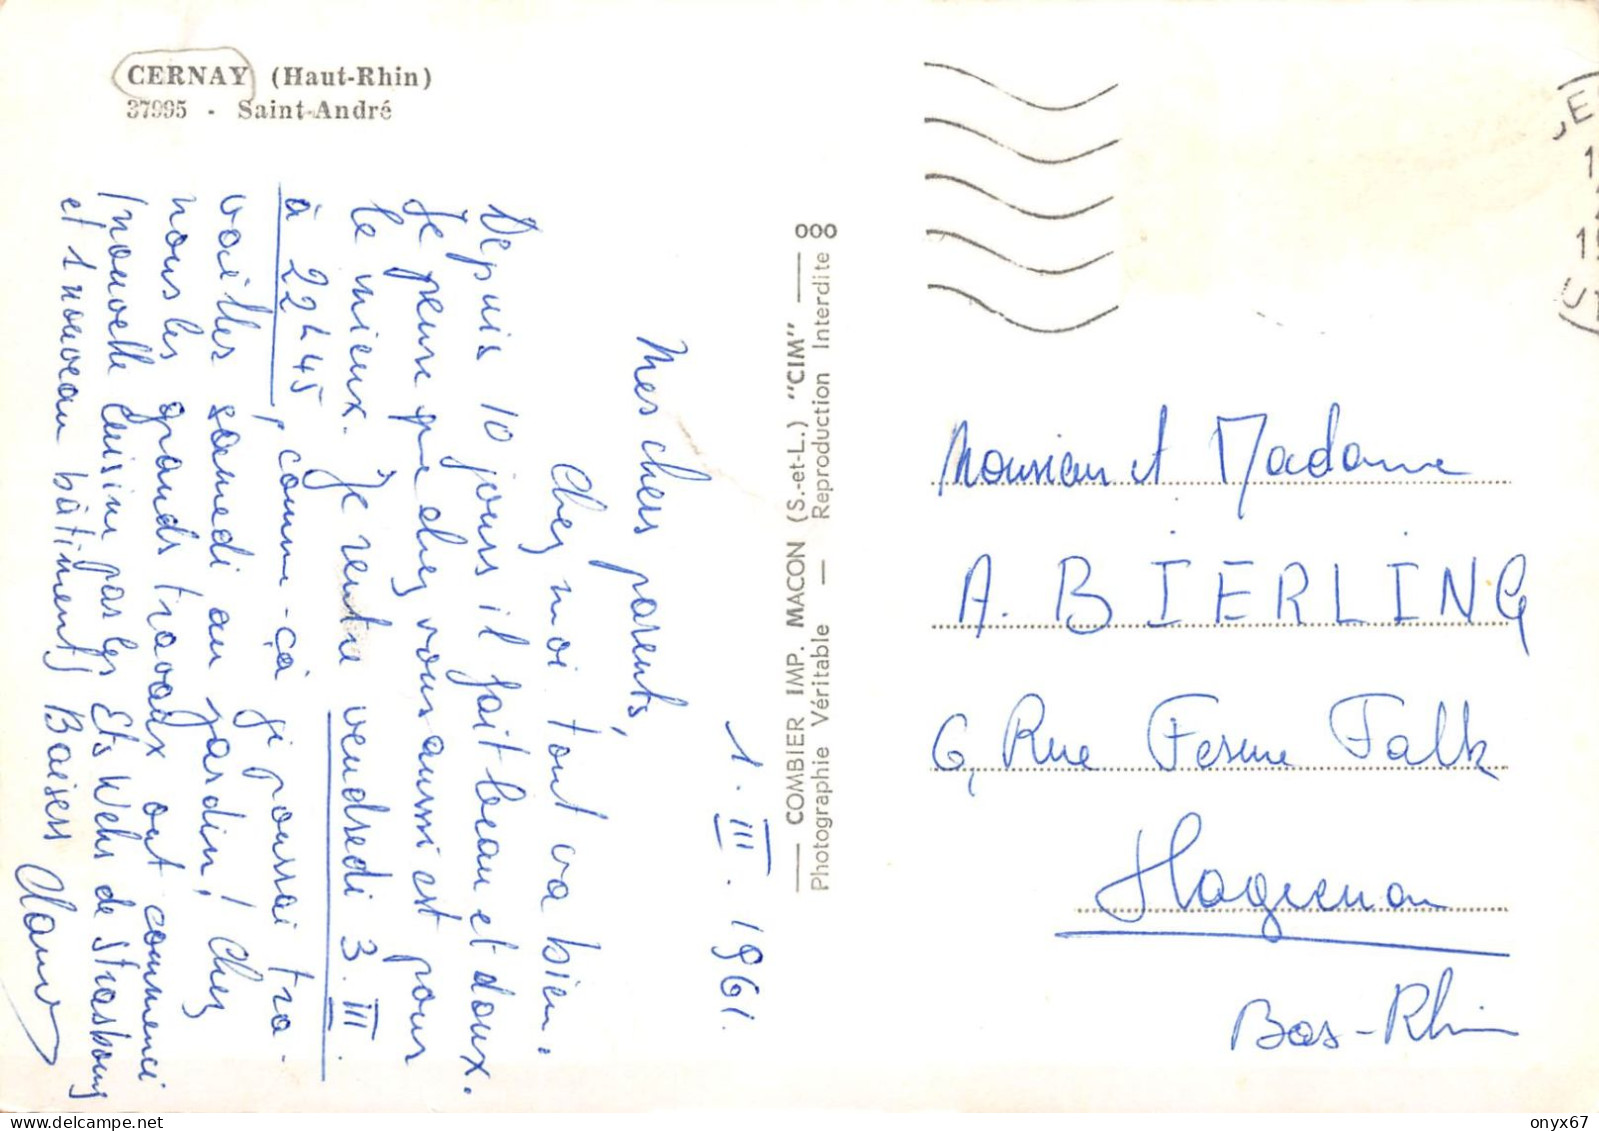 CERNAY (Haut-Rhin)
37995 - Saint-André
1. III. 1961.
Mes chers parents,
Chez moi tout va bien.
Depuis 10 jours il fait beau et doux.
Je pense que chez vous aussi est pour
le mieux. Je rentre vendredi 3. III.
à 22h45, comme-çà je pourrai tra-
vailler samedi au jardin! Chez
nous les grands travaux ont commencé
(nouvelle cuisine par les Ets Wehr de Strasbourg
et 1 nouveau bâtiment) Baisers
COMBIER IMP. MACON (S.-et-L.) "CIM"
Photographie Véritable — Reproduction Interdite
000
Monsieur et Madame
A. BIERLING
6, Rue Ferme Falk
Haguenau
Bas-Rhin
onyx67